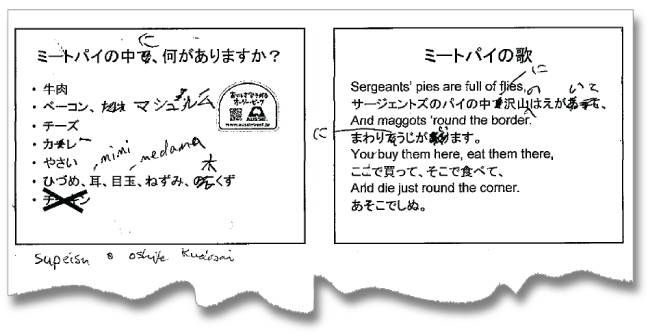 ミートパイの中に、何がありますか？
• 牛肉
• ベーコン、マシュルム
• チーズ
• カレー
• やさい
mimi medama
• ひづめ、耳、目玉、ねずみ、木くず
• チキン
www.aussiebeef.jp
supeisu o oshite kudasai
ミートパイの歌
Sergeants' pies are full of flies,
サージェントズのパイの中に沢山のはえがいて、
And maggots 'round the border.
まわりにうじがいます。
You buy them here, eat them there,
ここで買って、そこで食べて、
And die just round the corner.
あそこでしぬ。